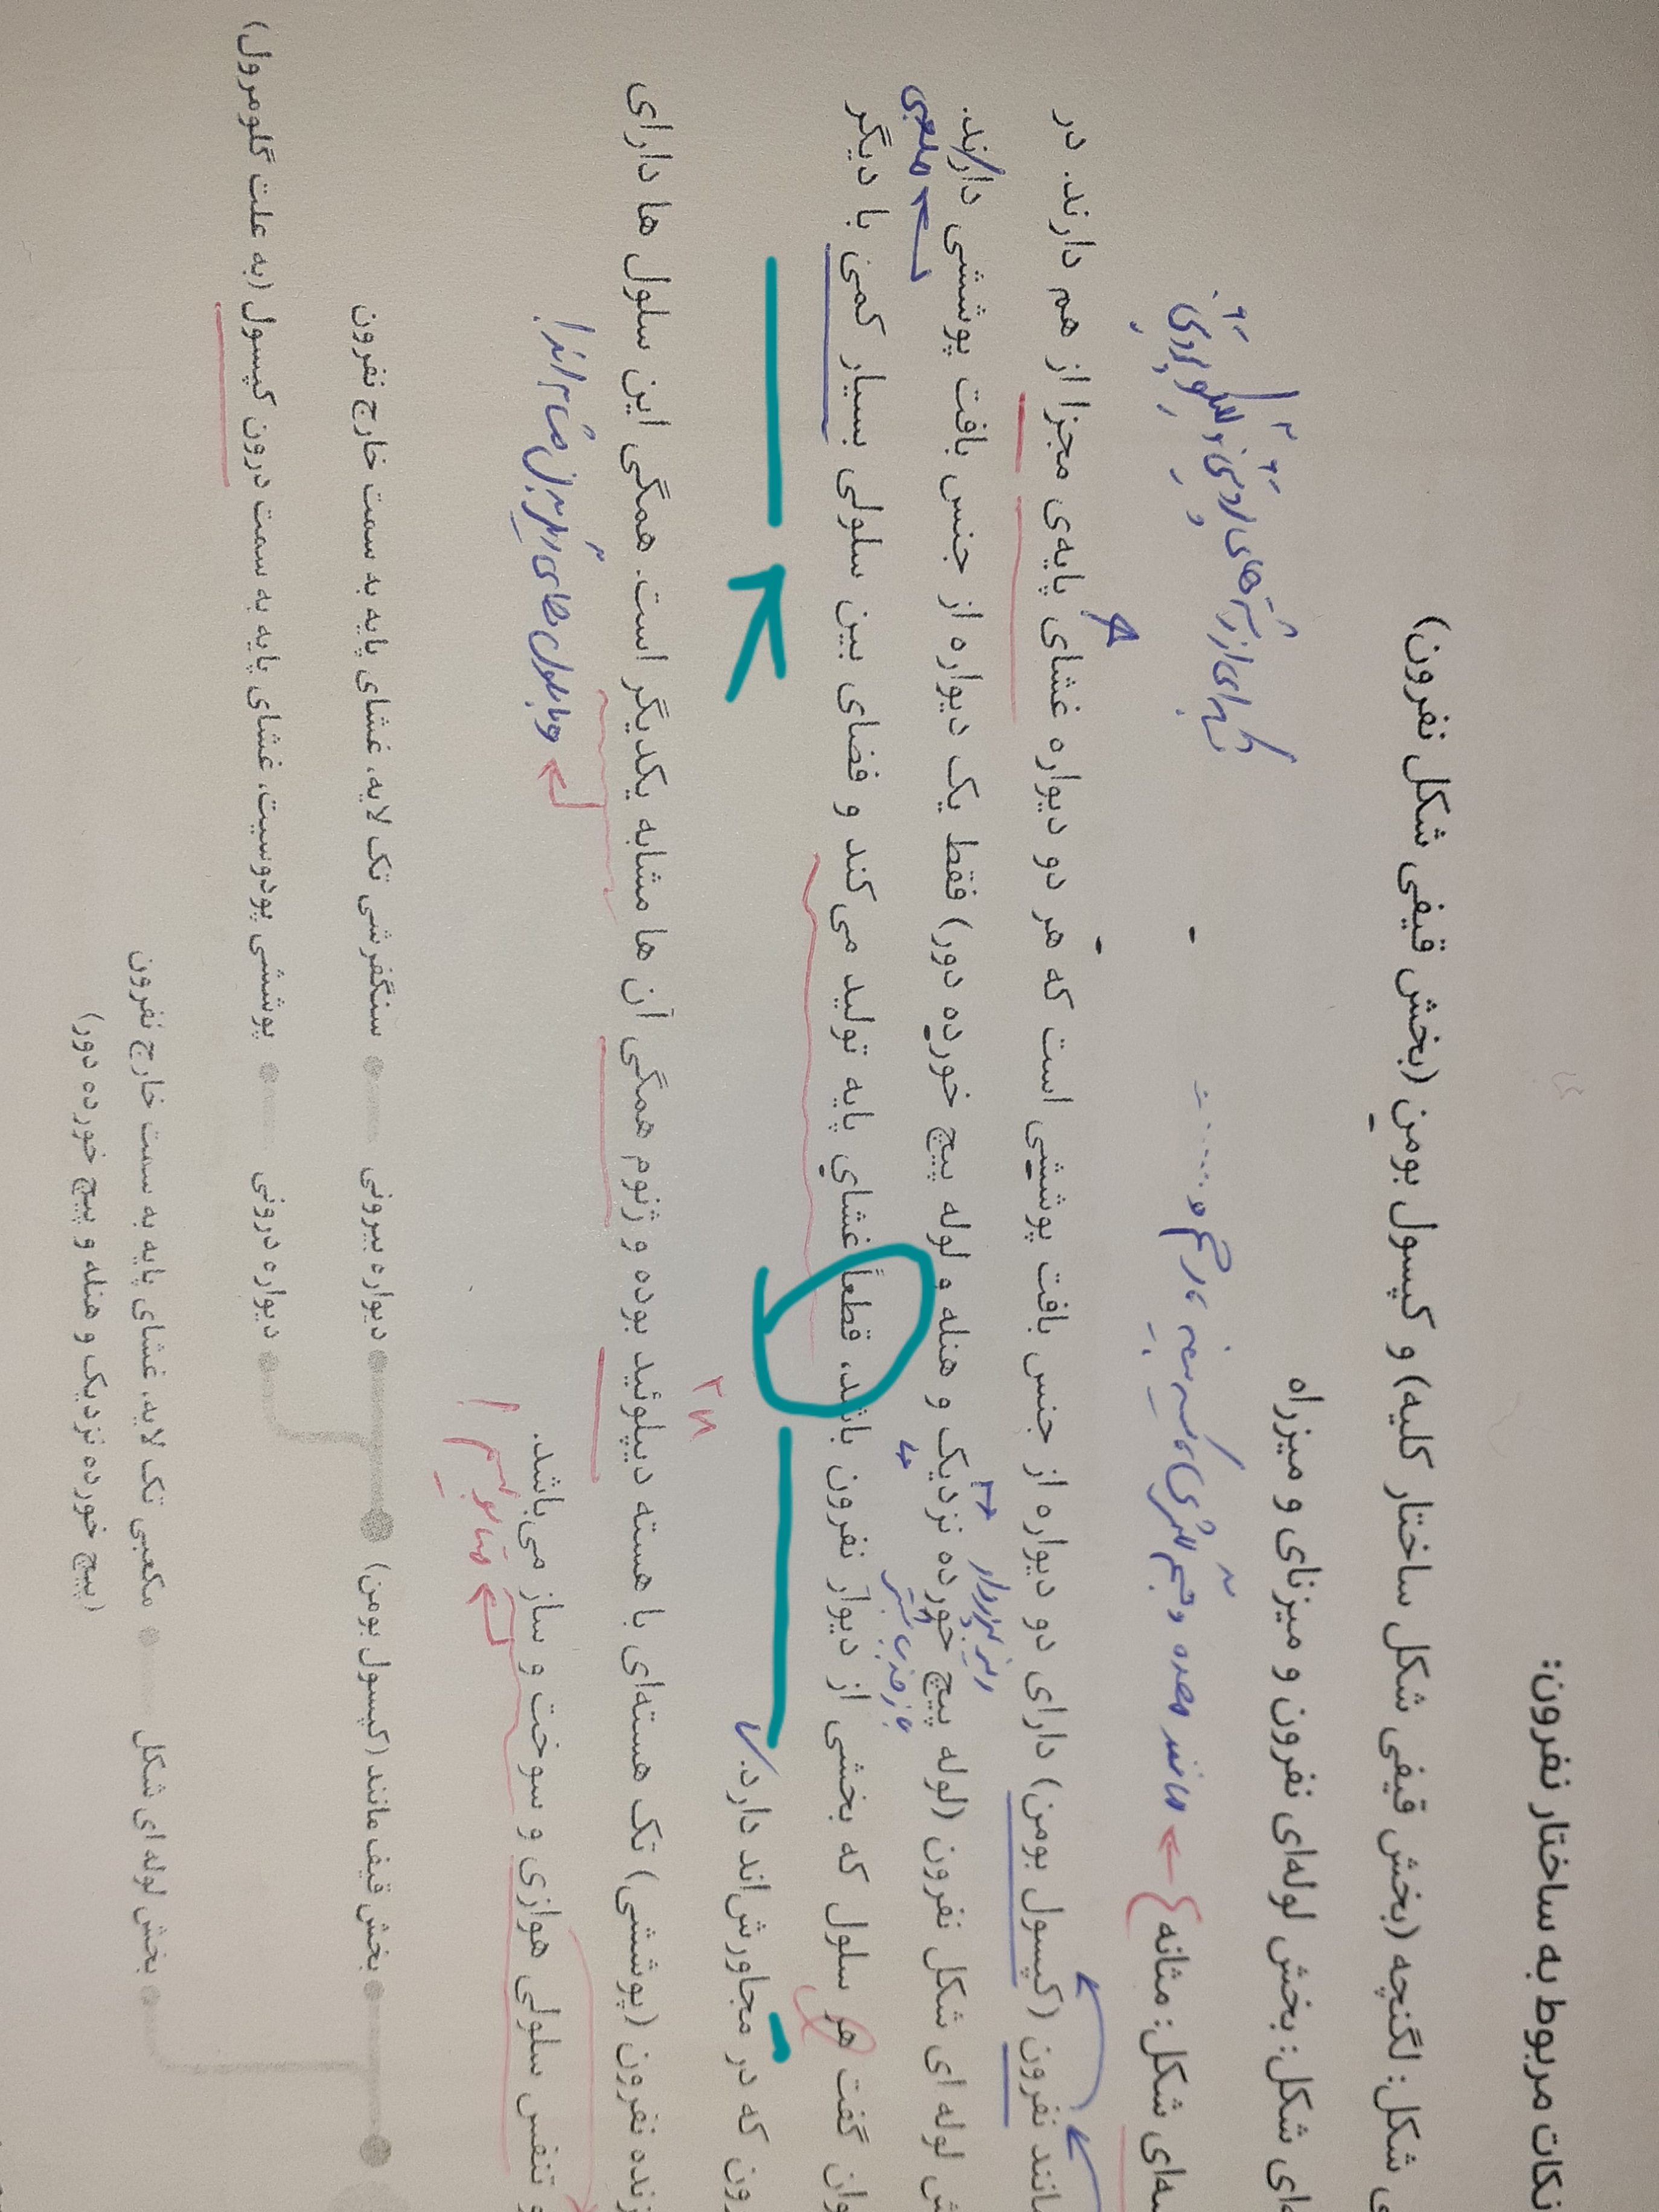 نکات مربوط به ساختار نفرون:
ی شکل: لگنچه (بخش قیفی شکل ساختار کلیه) و کپسول بومن (بخش قیفی شکل نفرون)
ه‌ای شکل: بخش لوله‌ای نفرون و میزنای و میزراه
سه‌ای شکل: مثانه
مانند معده
مانند نفرون (کپسول بومن) دارای دو دیواره از جنس بافت پوششی است که هر دو دیواره غشای پایه‌ی مجزا از هم دارند. در
ش لوله ای شکل نفرون (لوله پیچ خورده نزدیک و هنله و لوله پیچ خورده دور) فقط یک دیواره از جنس بافت پوششی دارند.
مکعبی
وان گفت هر سلول که بخشی از دیوار نفرون باشد، قطعاً غشای پایه تولید می‌کند و فضای بین سلولی بسیار کمی با دیگر
رون که در مجاورش‌اند دارد.
۲n
زنده نفرون (پوششی) تک هسته‌ای با هسته دیپلوئید بوده و ژنوم همگی آن ها مشابه یکدیگر است. همگی این سلول ها دارای
و تنفس سلولی هوازی و سوخت و ساز می‌باشد.
متابولیسم
بخش قیف مانند (کپسول بومن)
دیواره بیرونی
سنگفرشی تک لایه، غشای پایه به سمت خارج نفرون
دیواره درونی
پوششی پودوسیت، غشای پایه به سمت درون کپسول (به علت گلومرول)
بخش لوله ای شکل
مکعبی تک لایه، غشای پایه به سمت خارج نفرون
(پیچ خورده نزدیک و هنله و پیچ خورده دور)